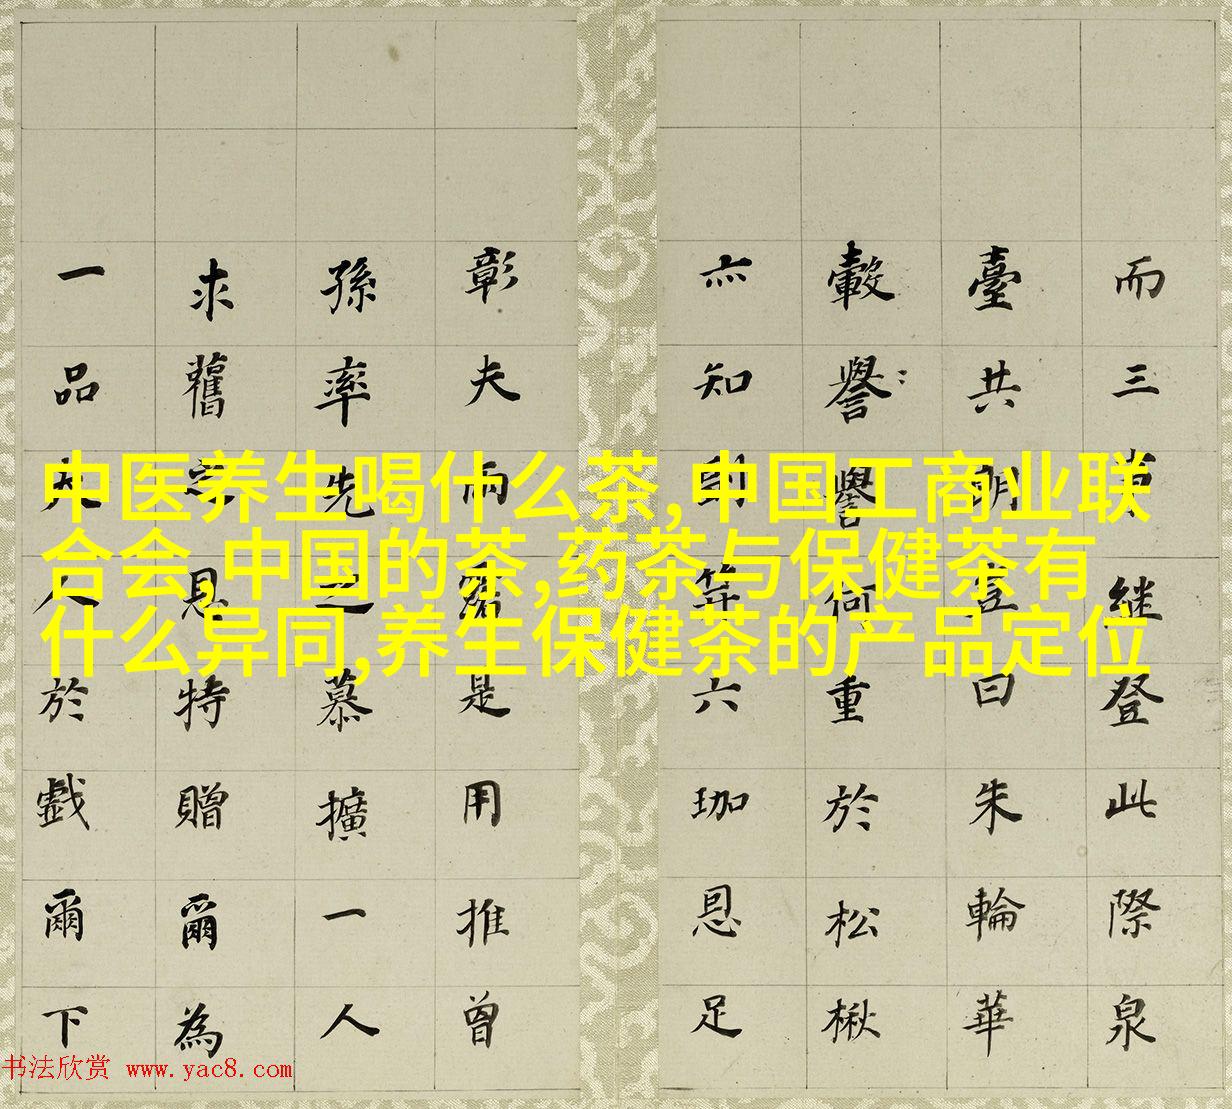 中医养生喝什么茶,中国工商业联
合会,中国的茶,药茶与保健茶有
什么异同,养生保健茶的产品定位
而三繼登此際泉
臺共明言曰朱輪華
轂譽譽何重於松楸
亦知副笄六珈恩足
彰夫雨露是用推曾
孫率先之慕擴一人
求舊恩特贈爾為
一品夫人於戲爾下
书法欣赏 www.yac8.com